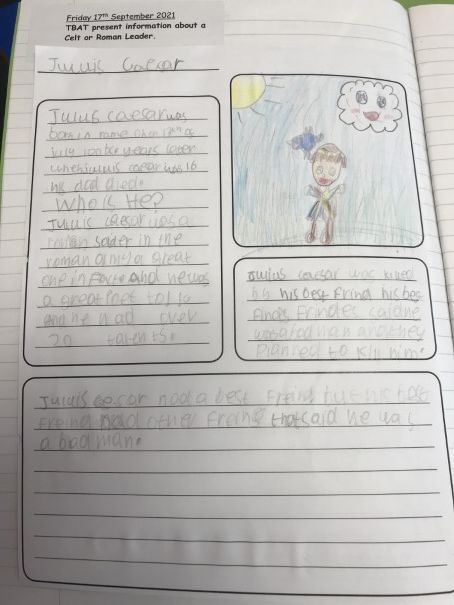 Friday 17th September 2021
TBAT present information about a
Celt or Roman Leader.
Juluis Caesar
Julus caesar was
born in rome on 12th of
july 100 bc years later
when juluis caesar was 16
his dad died.
Who is He?
Juluis caesar was a
roman in the
roman army a great
one in and he was
a great to
and he had over
20 talents.
Juluis caesar was killed
by his best Frind his best
Frindes said he
was a bad man and they
planned to kill him.
Juluis cesar had a best Freind but his best
Freind had other Freinds that said he was
a bad man.